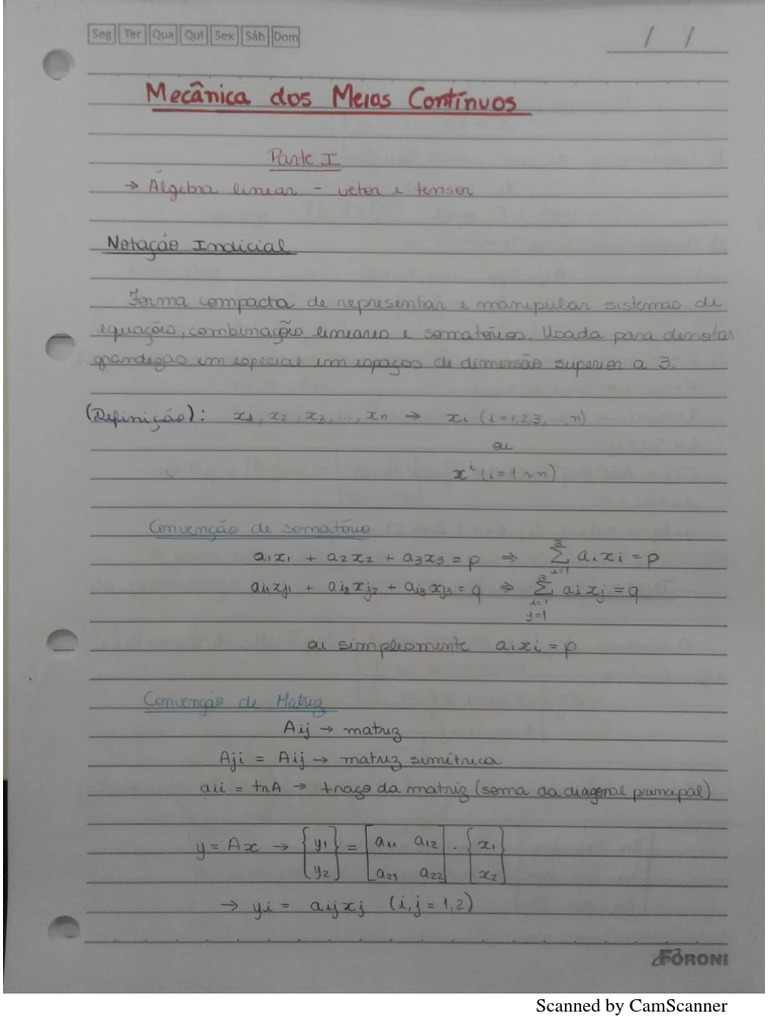 Seg Ter Qua Qui Sex Sáb Dom
/ /
Mecânica dos Meios Contínuos
Parte I
→ Álgebra linear - vetor e tensor
Notação Indicial
Forma compacta de representar e manipular sistemas de
equação, combinação lineares e somatórios. Usada para denotar
grandezas em especial em espaços de dimensão superior a 3.
(Definição): x1, x2, x3, ..., xn → xi (i=1,2,3,...,n)
ou
x^i (i=1~n)
Convenção de somatório
a1x1 + a2x2 + a3x3 = p ⇒ Σ aixi = p
ai1xj1 + ai2xj2 + ai3xj3 = q ⇒ Σ aixj = q
ou simplesmente aixi = p
Convenção de Matriz
Aij → matriz
Aji = Aij → matriz simétrica
aii = trA → traço da matriz (soma da diagonal principal)
y = Ax → {y1 y2} = [a11 a12 a21 a22] . {x1 x2}
→ yi = aijxj (i,j = 1,2)
FORONI
Scanned by CamScanner